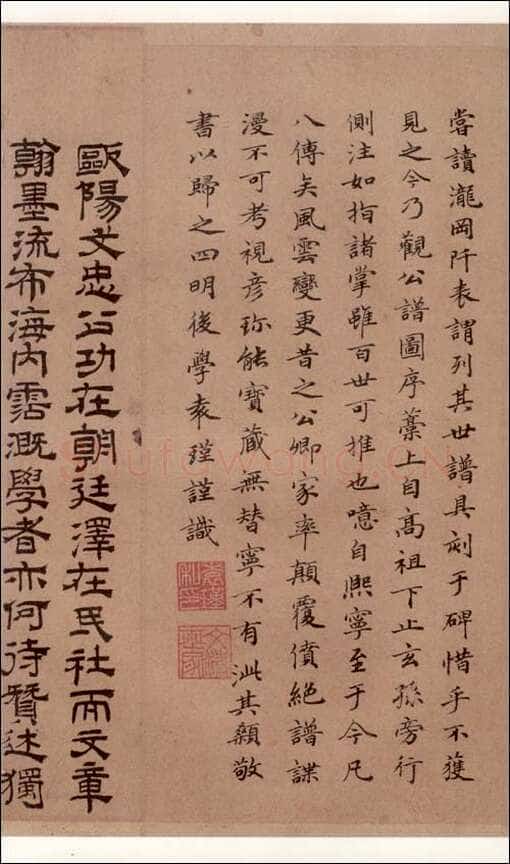 嘗讀瀧岡阡表謂列其世譜具刻于碑惜乎不獲
見之今乃觀公譜圖序藁上自高祖下止玄孫旁行
側注如指諸掌雖百世可推也噫自熈寧至于今凡
八傳矣風雲變更昔之公卿家率顛覆僨絕譜諜
漫不可考視彦珎能寶藏無替寧不有泚其顙敬
書以歸之四明後學袁瑾謹識
歐陽文忠公功在朝廷澤在民社而文章
翰墨流布海内霑溉學者亦何待贊述獨